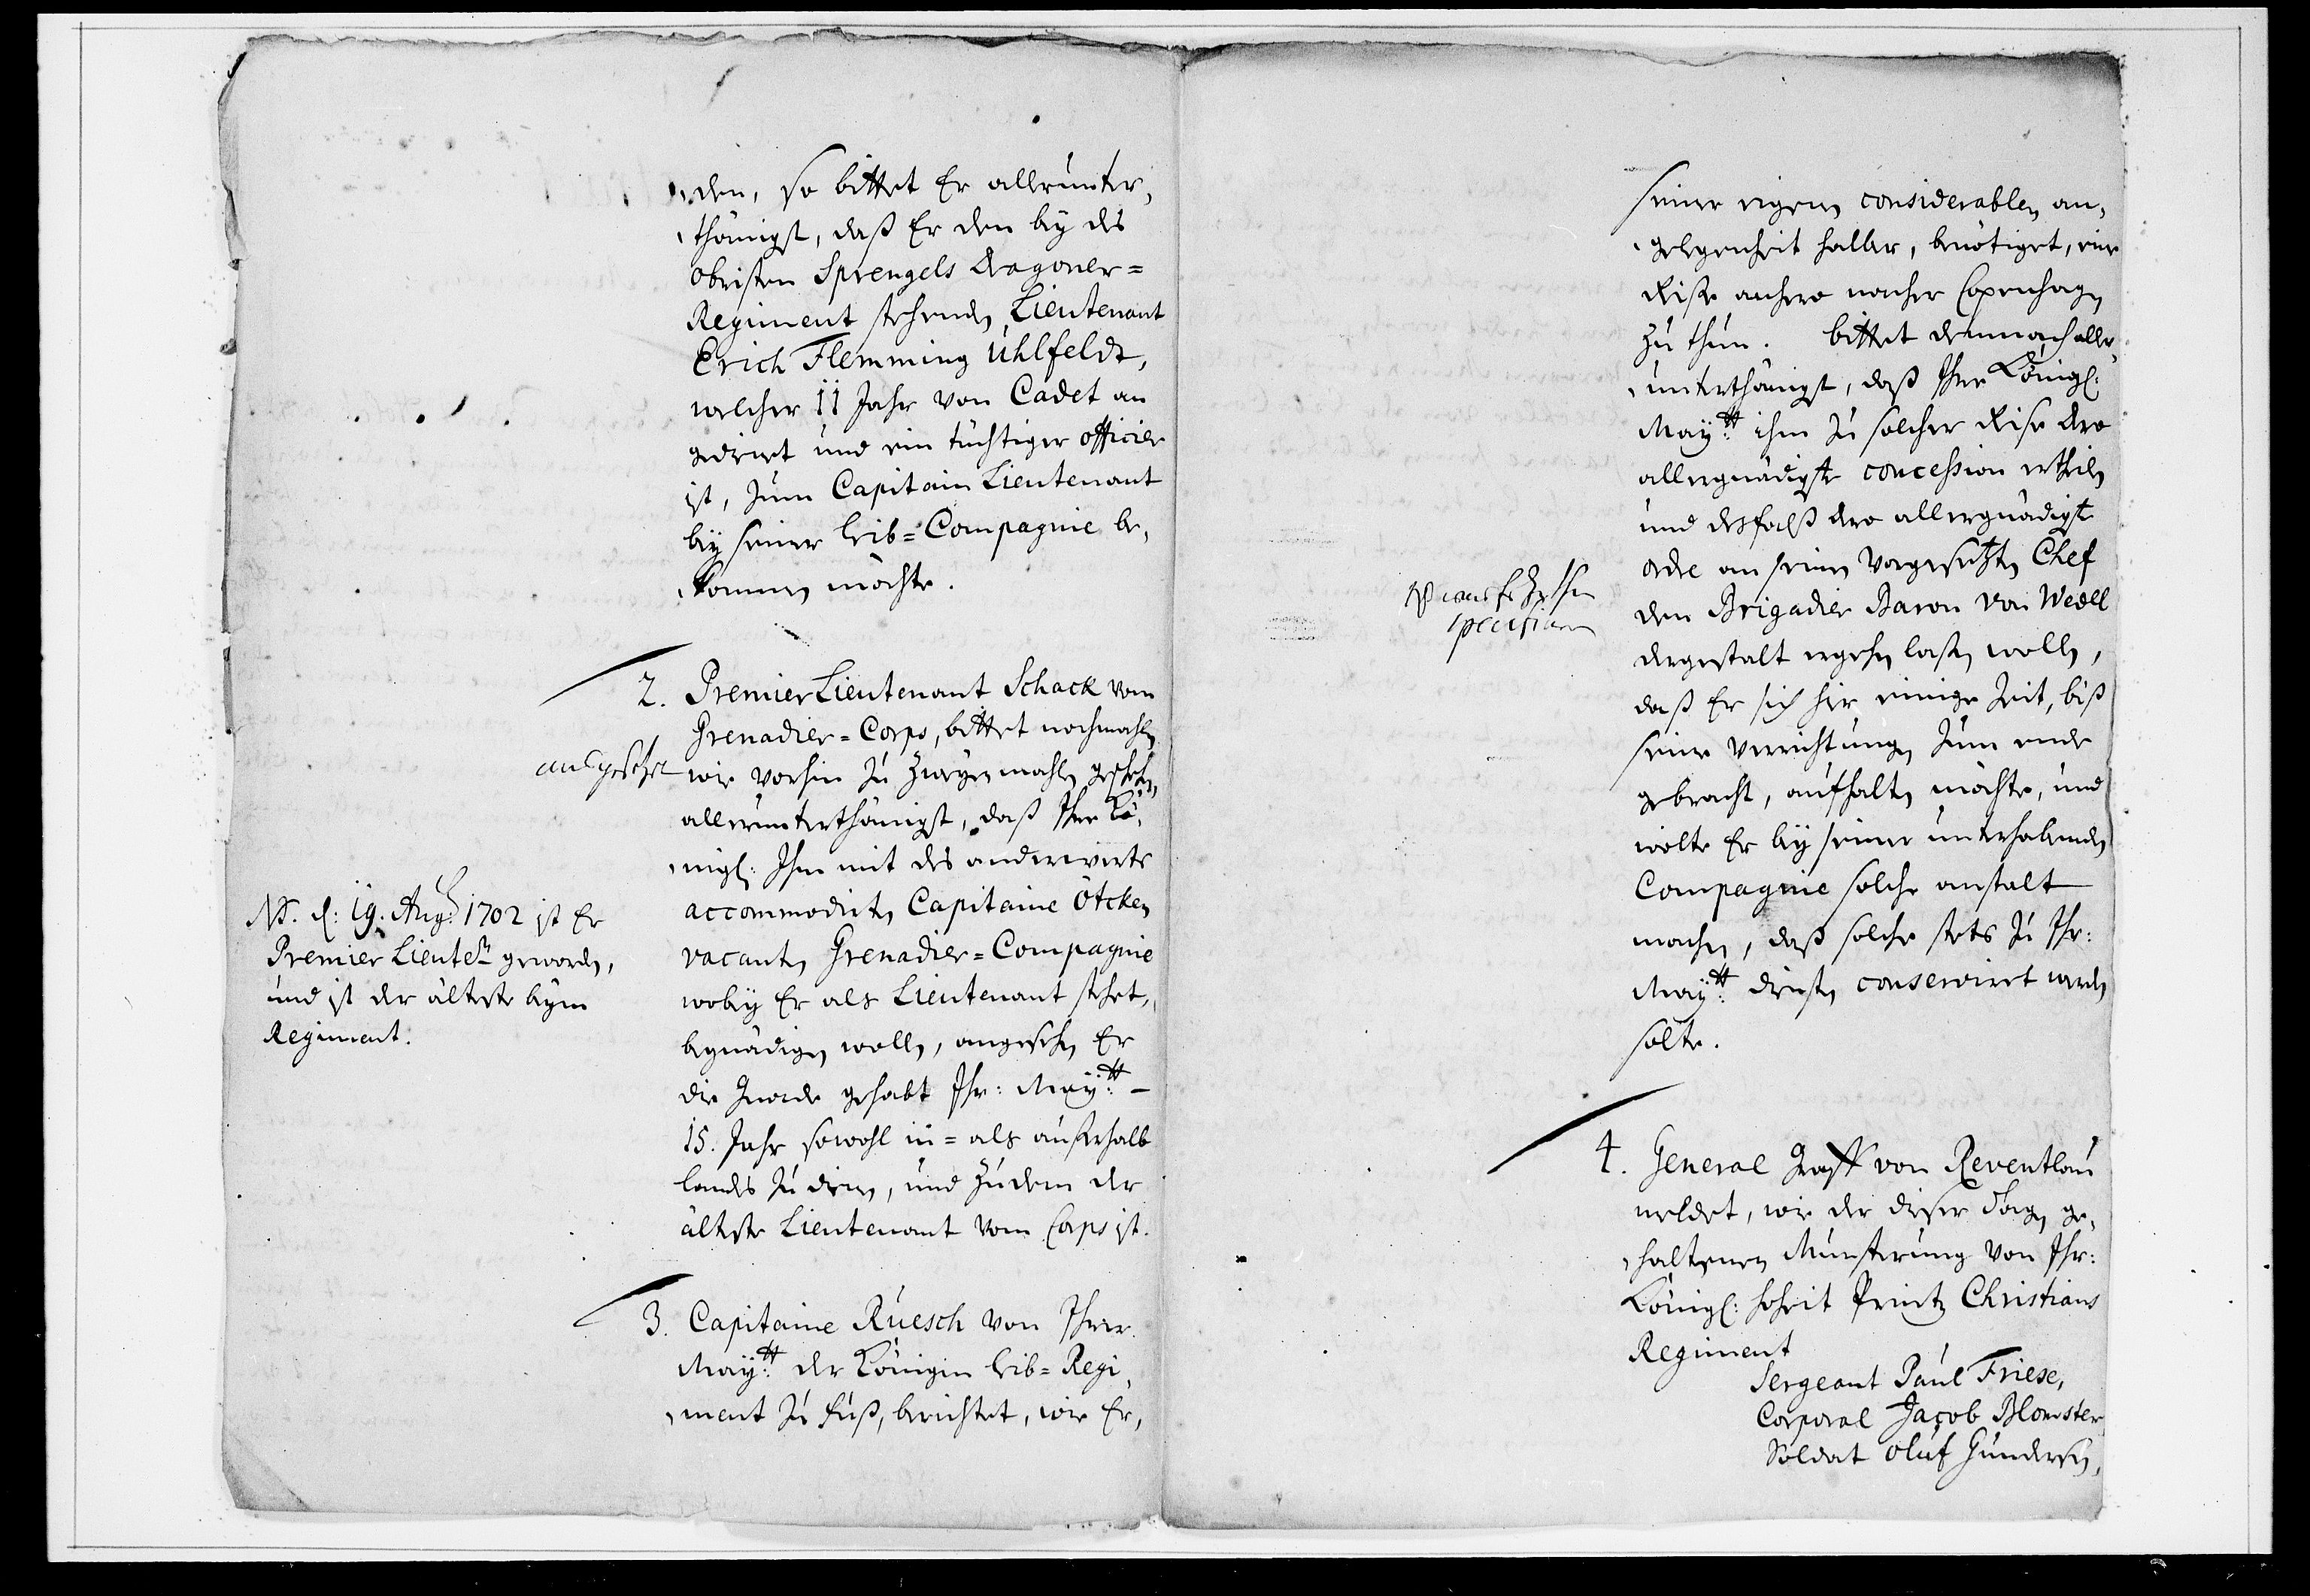 den, so bittet Er allerunter,
thänigst, daß Er den beÿ des
obristen Sprengels Dragoner=
Regiment stehenden Lieutenant
Erich Flemming Uhlfeldt,
welcher 11 Jahr von Cadet an
gedienet und ein tüchtiger officier
ist, zum Capitain Lieutenant
beÿ seiner Leib=Compagnie be,
kommen möchte.
2. Premier Lieutenant Schack vom
Grenadier=Corps, bittet nochmahlen
wie vorhin zu zweÿen mahlen geschehen,
allerunterthänigst, daß Ihre Kö,
nigl: Ihm mit des anderwerts
accommodirten CapitaineÖtcken
vacanten Grenadier=Compagnie
wobeÿ Er als Lieutenant stehet,
begnädigen wollen, angesehen Er
die Gnade gehabt Ihr: Maÿ:tt
15. Jahr sowohl in= als außerhalb
landes zu dienen, und zudem der
älteste Lieutenant vom Corps ist.
ausgesetzet
NB. d: 19. Aug: 1702 ist Er
Premier Lieute:nt geworden,
und ist der älteste beÿm
Regiment.
3. Capitaine Ruesch von Ihrer
Maÿ:tt der Königin Leib=Regi,
ment zu fuß, berichtet, wie Er,
seiner eigenen considerablen an,
gelegenheit halber, benötiget, eine
Reise anhero nacher Copenhagen
zu thun. bittet demnach aller,
unterthänigst, daß Ihre Königl:
Maÿ:tt ihm zu solcher Reise dero
allergnädigste concession ertheilen
und desfalß dero allergnädigste
ordre an seinen vorgesetzten Chef
den Brigadier Baron von Wedell
dergestalt ergehen laßen wollen,
daß Er sich hier einige Zeit, biß
seine verrichtungen zum ende
gebracht, aufhalten möchte, und
wolte Er beÿ seiner unterhabenden
Compagnie solche anstalt
machen, daß solche stets zu Ihr:
Maÿ:tt diensten conserviret werden
solte.
4. General Graff von Reventlau
meldet, wie der dieser Tagen ge,
haltenen Munsterung von Ihr:
Königl: Hoheit Printz Christians
Regiment
Sergeant Paul Friese,
Corporal Jacob Blomster
Soldat Oluf Gundersen,